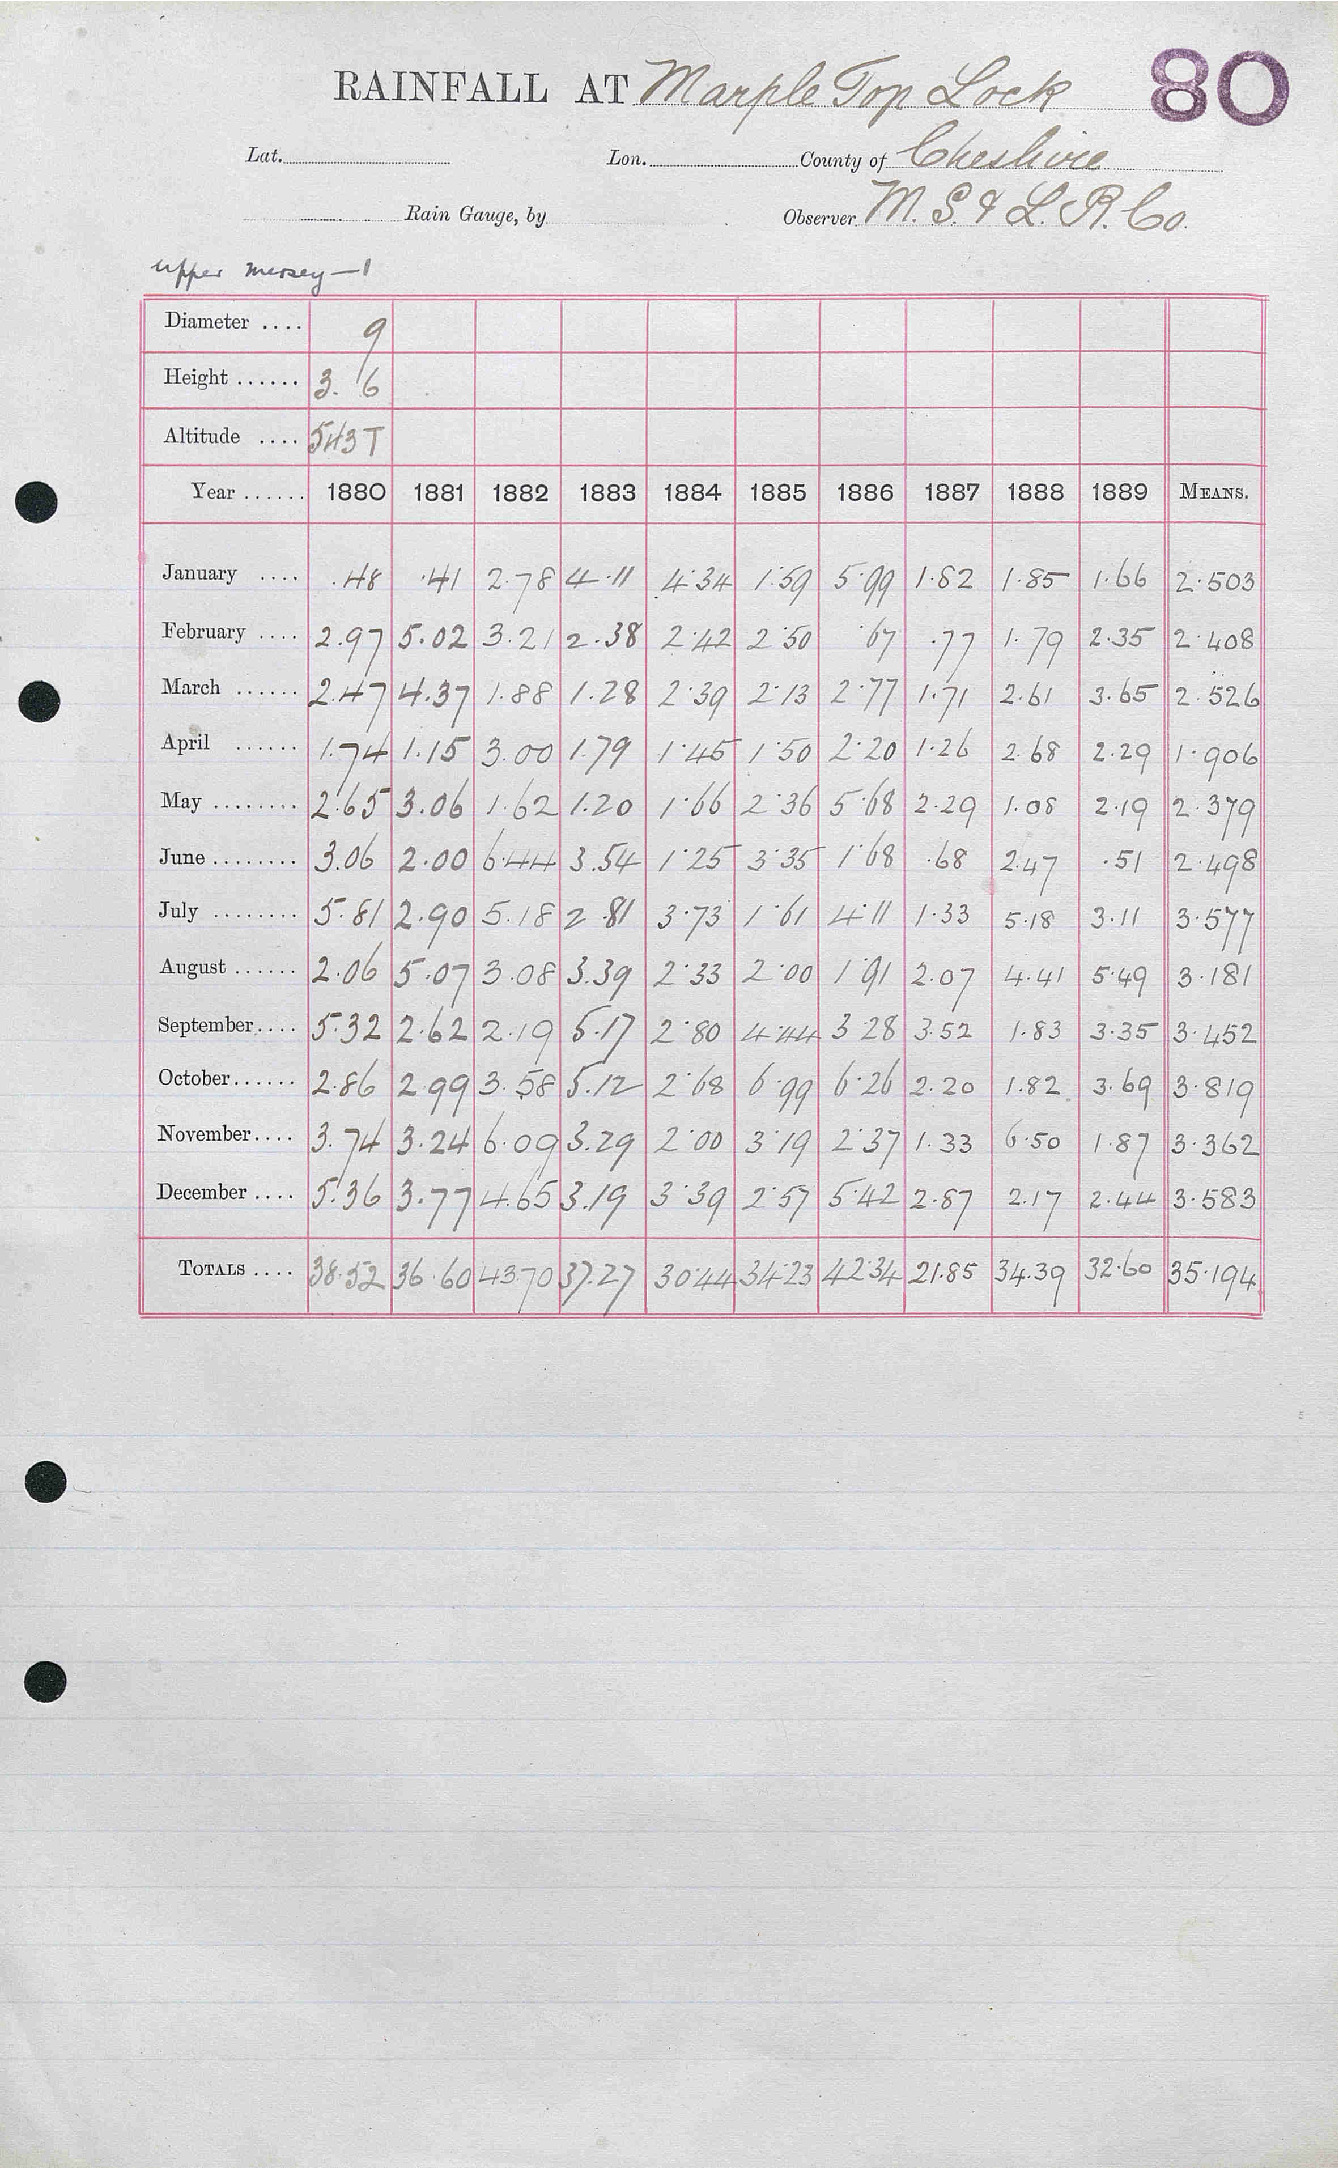 RAINFALL AT Marple Top Lock 80
Lat. Lon. County of Cheshire
Rain Gauge, by Observer M. S. & L. R. Co.
Upper Mersey—1
Diameter .... 9
Height ...... 3. 6
Altitude .... 543 T
Year ...... 1880 1881 1882 1883 1884 1885 1886 1887 1888 1889 MEANS.
January .... .48 .41 2.78 4.11 4.34 1.59 5.99 1.82 1.85 1.66 2.503
February .... 2.97 5.02 3.21 2.38 2.42 2.50 .67 .77 1.79 2.35 2.408
March ...... 2.47 4.37 1.88 1.28 2.39 2.13 2.77 1.71 2.61 3.65 2.526
April ...... 1.74 1.15 3.00 1.79 1.45 1.50 2.20 1.26 2.68 2.29 1.906
May ........ 2.65 3.06 1.62 1.20 1.66 2.36 5.68 2.29 1.08 2.19 2.379
June ........ 3.06 2.00 6.44 3.54 1.25 3.35 1.68 .68 2.47 .51 2.498
July ........ 5.81 2.90 5.18 2.81 3.73 1.61 4.11 1.33 5.18 3.11 3.577
August ...... 2.06 5.07 3.08 3.39 2.33 2.00 1.91 2.07 4.41 5.49 3.181
September.... 5.32 2.62 2.19 5.17 2.80 4.44 3.28 3.52 1.83 3.35 3.452
October...... 2.86 2.99 3.58 5.12 2.68 6.99 6.26 2.20 1.82 3.69 3.819
November.... 3.74 3.24 6.09 3.29 2.00 3.19 2.37 1.33 6.50 1.87 3.362
December .... 5.36 3.77 4.65 3.19 3.39 2.57 5.42 2.87 2.17 2.44 3.583
TOTALS .... 38.52 36.60 43.70 37.27 30.44 34.23 42.34 21.85 34.39 32.60 35.194